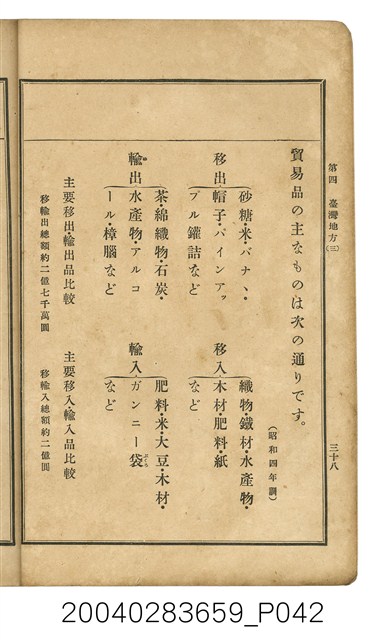 第四　臺灣地方(三)
三十八
貿易品の主なものは次の通りです。
(昭和四年調)
移出
砂糖・米・バナヽ・
帽子・パインアッ
プル罐詰など
移入
織物・鐵材・水產物・
木材・肥料・紙
など
輸出
茶・綿織物・石炭・
水產物・アルコ
ール・樟腦など
輸入
肥料・米・大豆・木材・
ガンニー袋
など
主要移出・輸出品比較
移輸出總額約二億七千萬圓
主要移入・輸入品比較
移輸入總額約二億圓
20040283659_P042